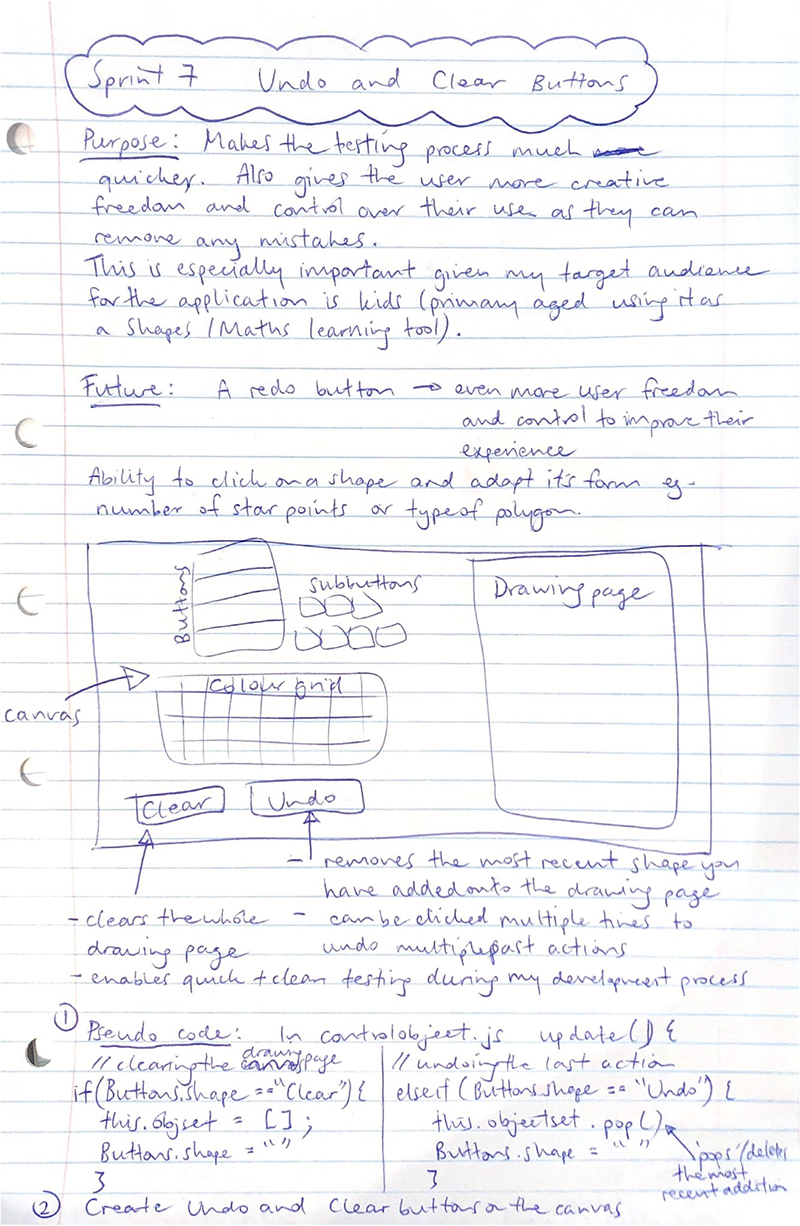 Sprint 7 Undo and Clear Buttons
Purpose: Makes the testing process much
quicker. Also gives the user more creative
freedom and control over their use as they can
remove any mistakes.
This is especially important given my target audience
for the application is kids (primary aged using it as
a shapes / Maths learning tool).
Future: A redo button → even more user freedom
and control to improve their
experience
Ability to click on a shape and adapt it's form eg-
number of star points or type of polygon.
Buttons
subbuttons
Drawing page
Colour grid
canvas
Clear
Undo
- removes the most recent shape you
have added onto the drawing page
- clears the whole
drawing page
- can be clicked multiple times to
undo multiple past actions
- enables quick + clean testing during my development process
① Pseudo code: In controlobject.js update() {
// clearing the drawing page
if(Buttons.shape =="Clear") {
this.objset = [];
Buttons.shape = ""
}
// undoing the last action
elseif (Buttons.shape == "Undo") {
this.objectset.pop()
Buttons.shape = " "
}
'pops'/deletes
the most
recent addition
② Create Undo and Clear buttons on the canvas